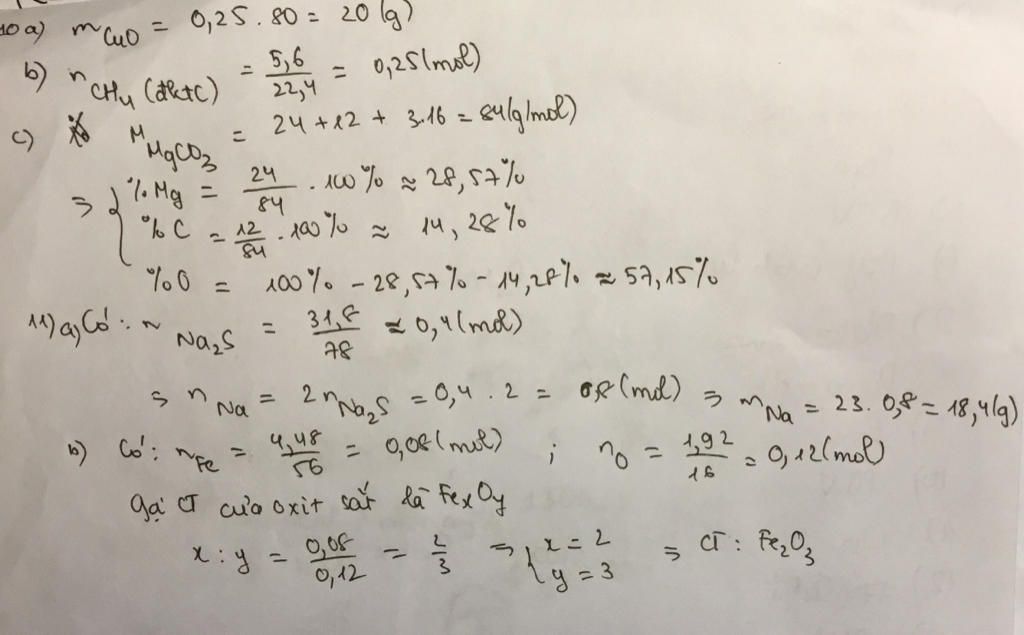 10 a) mCuO = 0,25 . 80 = 20 (g)
b) nCH4 (đktc) = 5,6/22,4 = 0,25 (mol)
c) MMgCO3 = 24 + 12 + 3.16 = 84 (g/mol)
⇒ { %Mg = 24/84 . 100% ≈ 28,57%
%C = 12/84 . 100% ≈ 14,28%
%O = 100% - 28,57% - 14,28% ≈ 57,15%
11) a, Có: nNa2S = 31,8/78 ≈ 0,4 (mol)
⇒ nNa = 2nNa2S = 0,4 . 2 = 0,8 (mol) ⇒ mNa = 23. 0,8 = 18,4 (g)
b) Có: nFe = 4,48/56 = 0,08 (mol) ; nO = 1,92/16 = 0,12 (mol)
Gọi CT của oxit sắt là FexOy
x : y = 0,08/0,12 = 2/3 ⇒ { x = 2 y = 3 ⇒ CT : Fe2O3